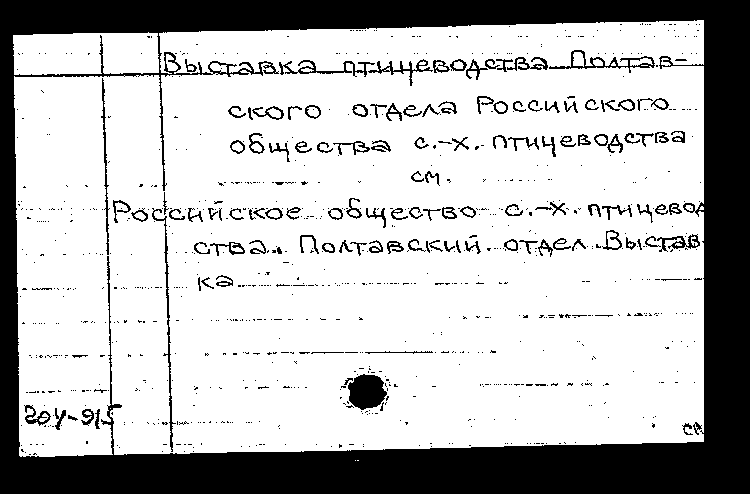 Выставка птицеводства Полтав-
ского отдела Российского
общества с.-х. птицеводства
см.
Российское общество с.-х. птицевод
ства. Полтавский отдел. Выстав-
ка